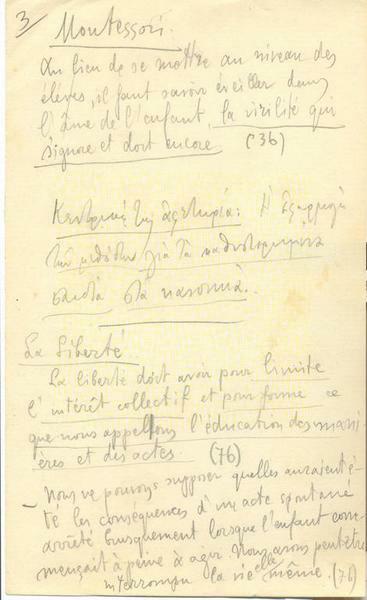 3
Montessori.
Au lieu de se mettre au niveau des
élèves, il faut savoir éveiller dans
l'âme de l'enfant, la virilité qui
s'ignore et dort encore (36)
Κεντρική της αφετηρία: Η εφαρμογή
των μεθόδων για τα καθυστερημένα
παιδιά στα κανονικά.
La Liberté.
La liberté doit avoir pour limite
l'intérêt collectif et pour forme ce
que nous appellons l'éducation des mani-
ères et des actes. (76)
- Nous ne pouvons supposer quelles auraient é-
té les conséquences d'un acte spontané
arrêté brusquement lorsque l'enfant com-
mençait à peine à agir. Nous avons peut-être
interrompu la vie elle même. (76)